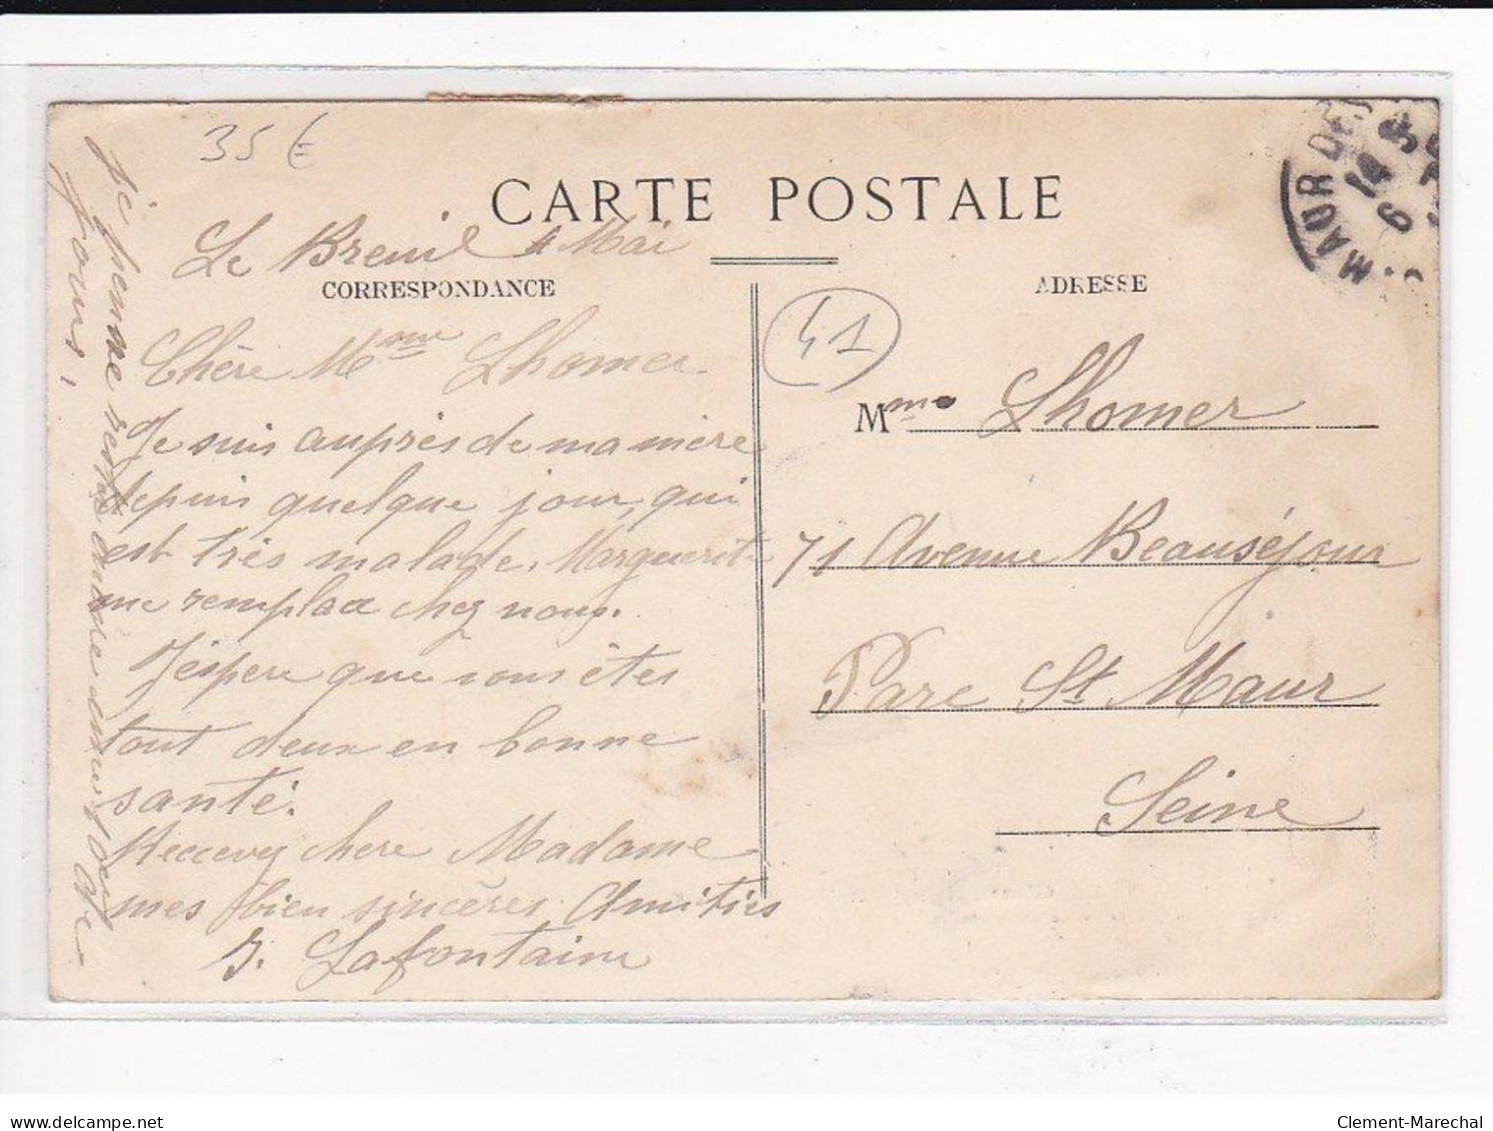 35 €
CARTE POSTALE
Le Breuil 4 Mai
CORRESPONDANCE
ADRESSE
41
Chère Mme Lhomer
Je suis auprès de ma mère
depuis quelque jour, qui
est très malade. Marguerite
me remplace chez nous.
J'éspere que vous êtes
tout deux en bonne
santé.
Recevez chere Madame
mes bien sincères Amitiés
J. Lafontaine
je pense rester encore 8 ou
jours,
Mme Lhomer
71 Avenue Beauséjour
Parc St Maur
Seine
MAUR DES
delcampe.net
Clement-Marechal